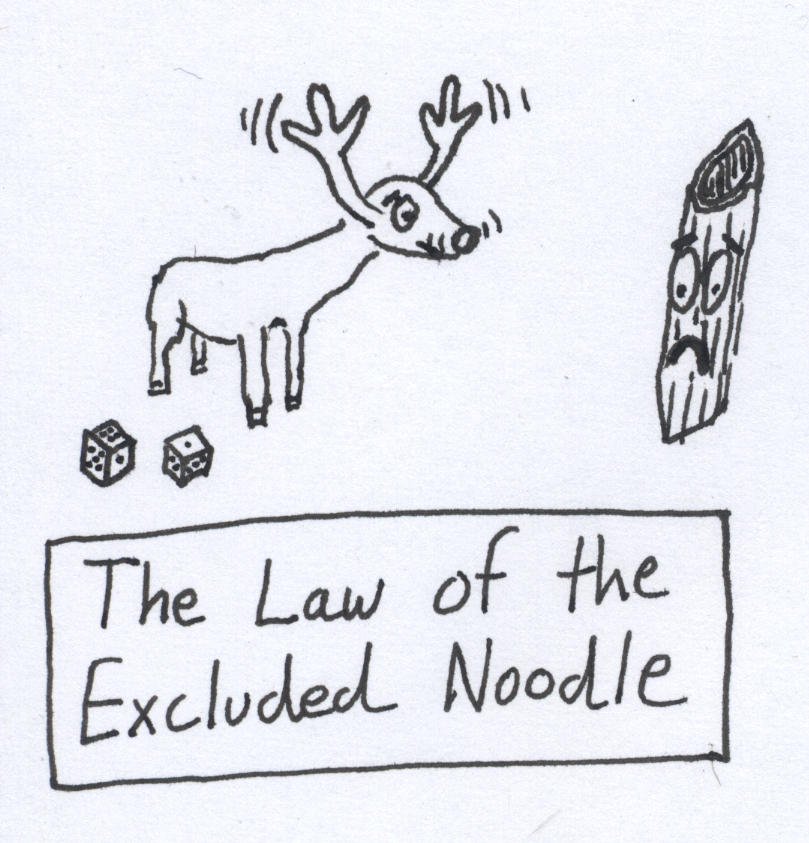 The Law of the
Excluded Noodle